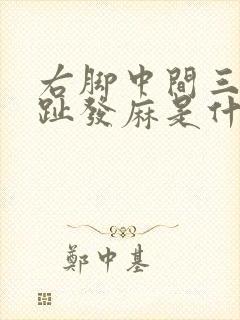 右脚中間三
趾發麻是什
鄭中基